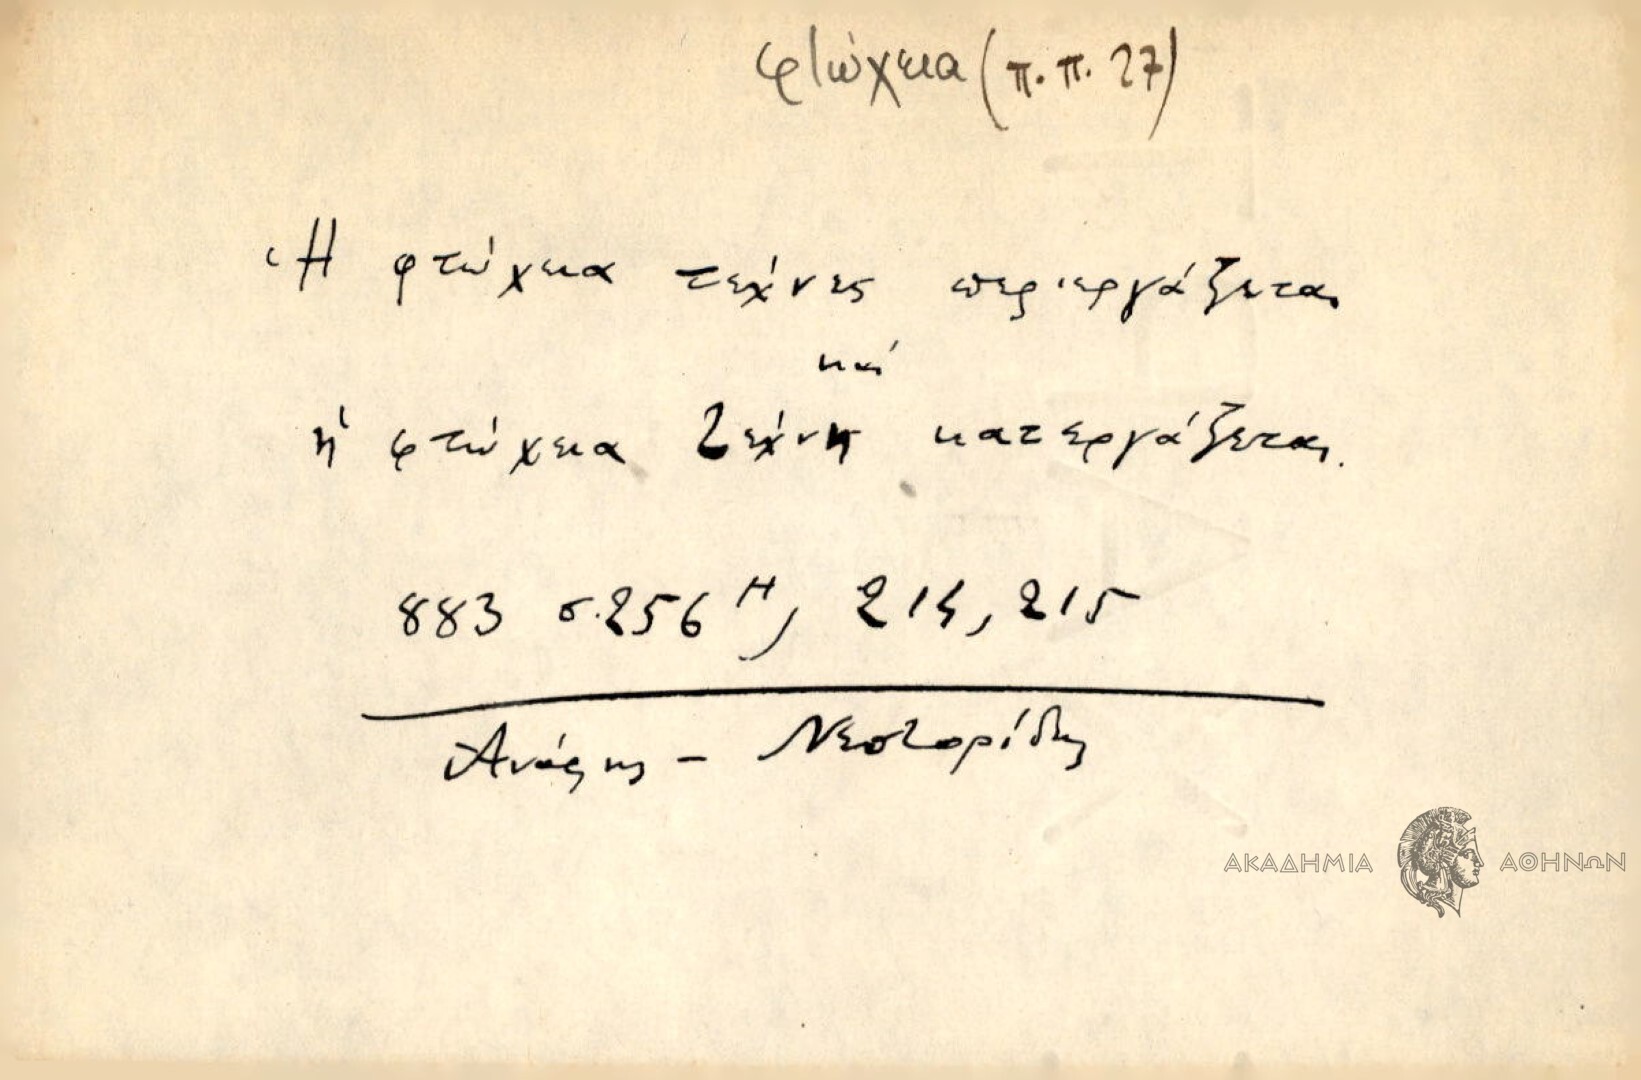 φτώχεια (π.π. 27)
Ἡ φτώχεια τέχνες περιεργάζεται
καί
ἡ φτώχεια τέχνη κατεργάζεται.
883 σ. 256 Η, 214, 215
Νεστορίδης
ΑΚΑΔΗΜΙΑ ΑΘΗΝΩΝ